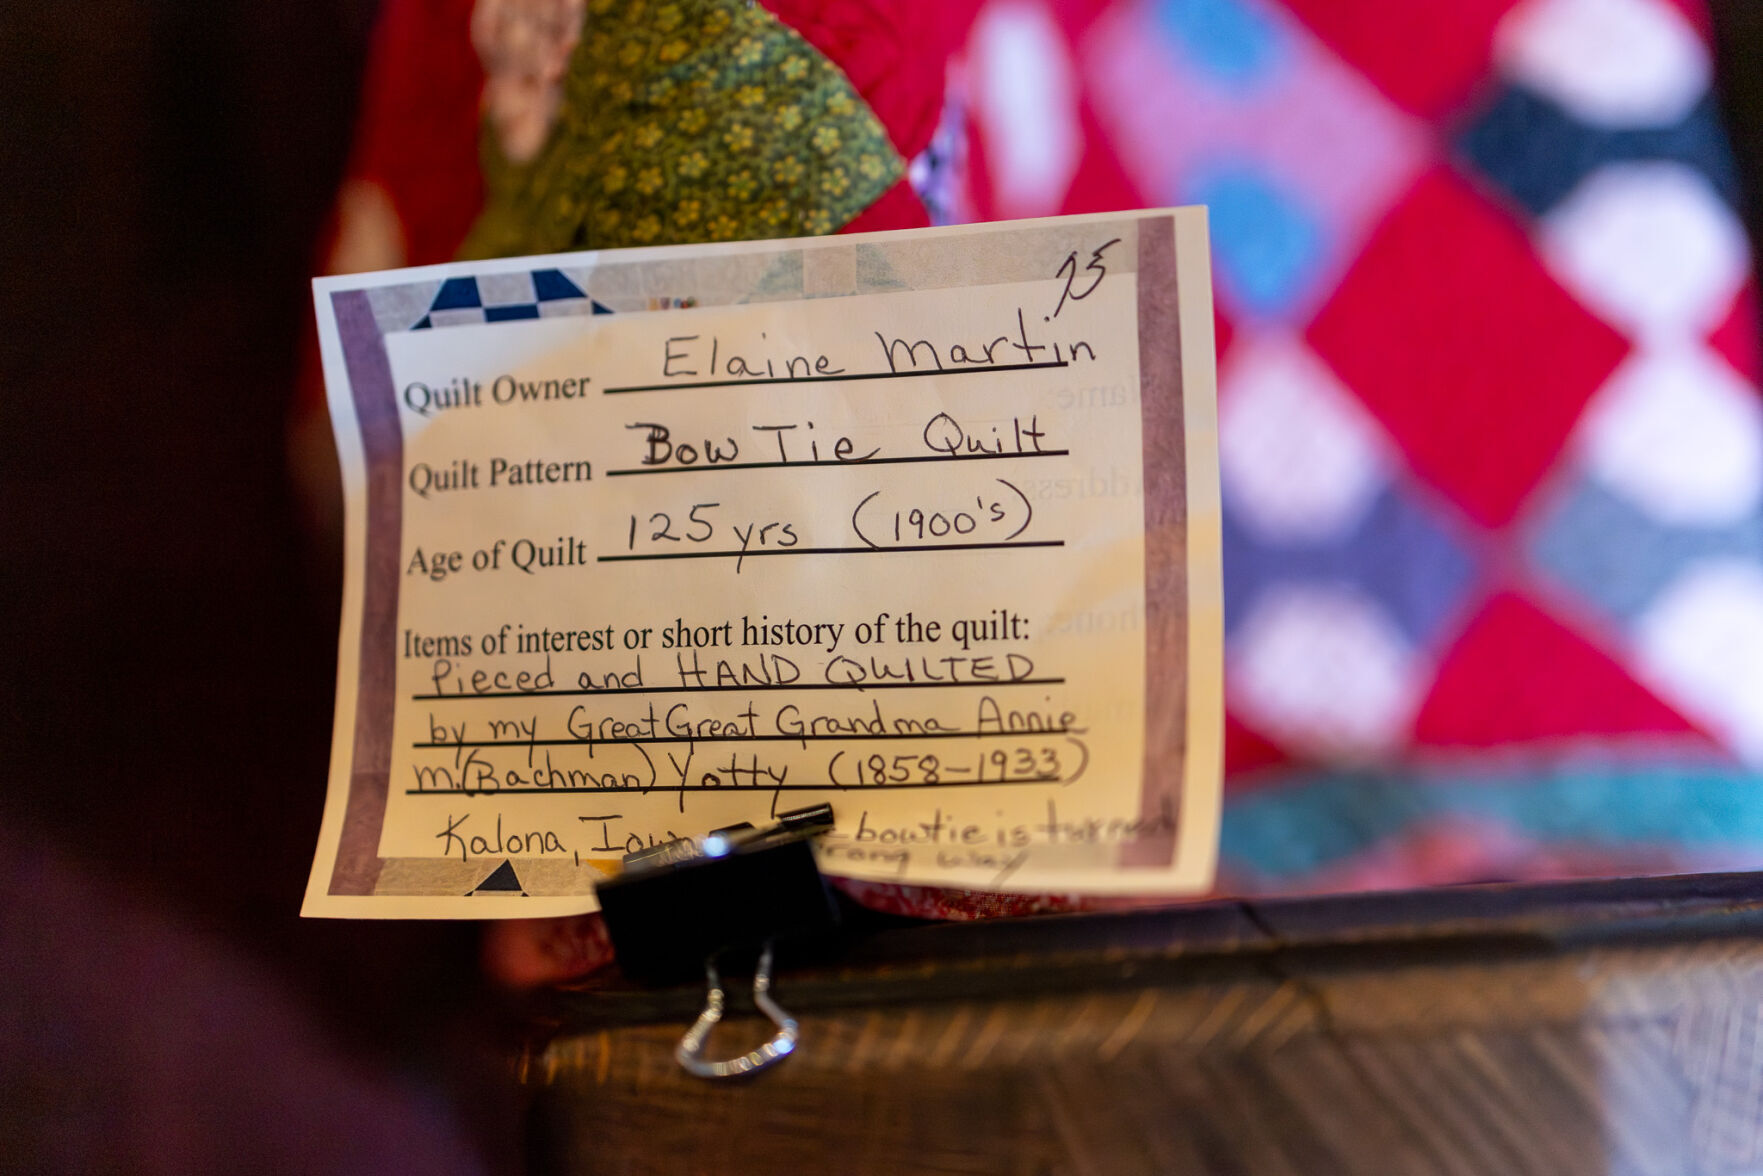 75
Quilt Owner Elaine Martin
Quilt Pattern Bow Tie Quilt
Age of Quilt 125 yrs (1900's)
Items of interest or short history of the quilt:
Pieced and HAND QUILTED
by my Great Great Grandma Annie
m. (Bachman) Yotty (1858-1933)
Kalona, Iowa bowtie is turned
wrong way